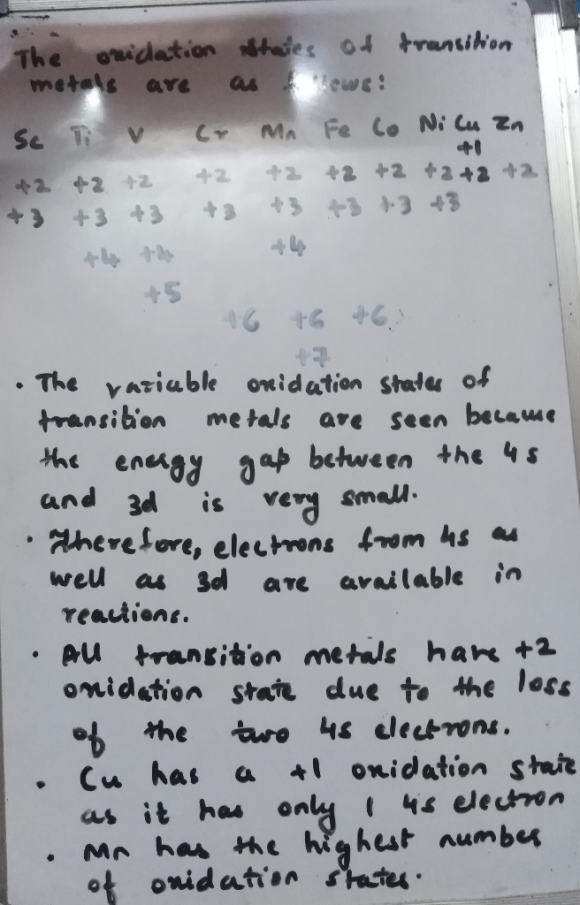 The oxidation states of transition
metals are as follows:
Sc Ti V Cr Mn Fe Co Ni Cu Zn
+1
+2 +2 +2 +2 +2 +2 +2 +2 +2 +2
+3 +3 +3 +3 +3 +3 +3 +3
+4 +4 +4
+5
+6 +6 +6
+7
• The variable oxidation states of
transition metals are seen because
the energy gap between the 4s
and 3d is very small.
• Therefore, electrons from 4s as
well as 3d are available in
reactions.
• All transition metals have +2
oxidation state due to the loss
of the two 4s electrons.
• Cu has a +1 oxidation state
as it has only 1 4s electron
• Mn has the highest number
of oxidation states.